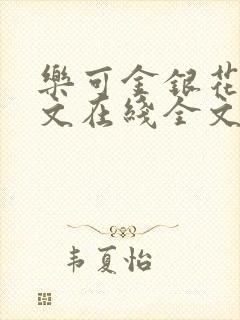 樂可金銀花
文在綫全文
韦夏怡